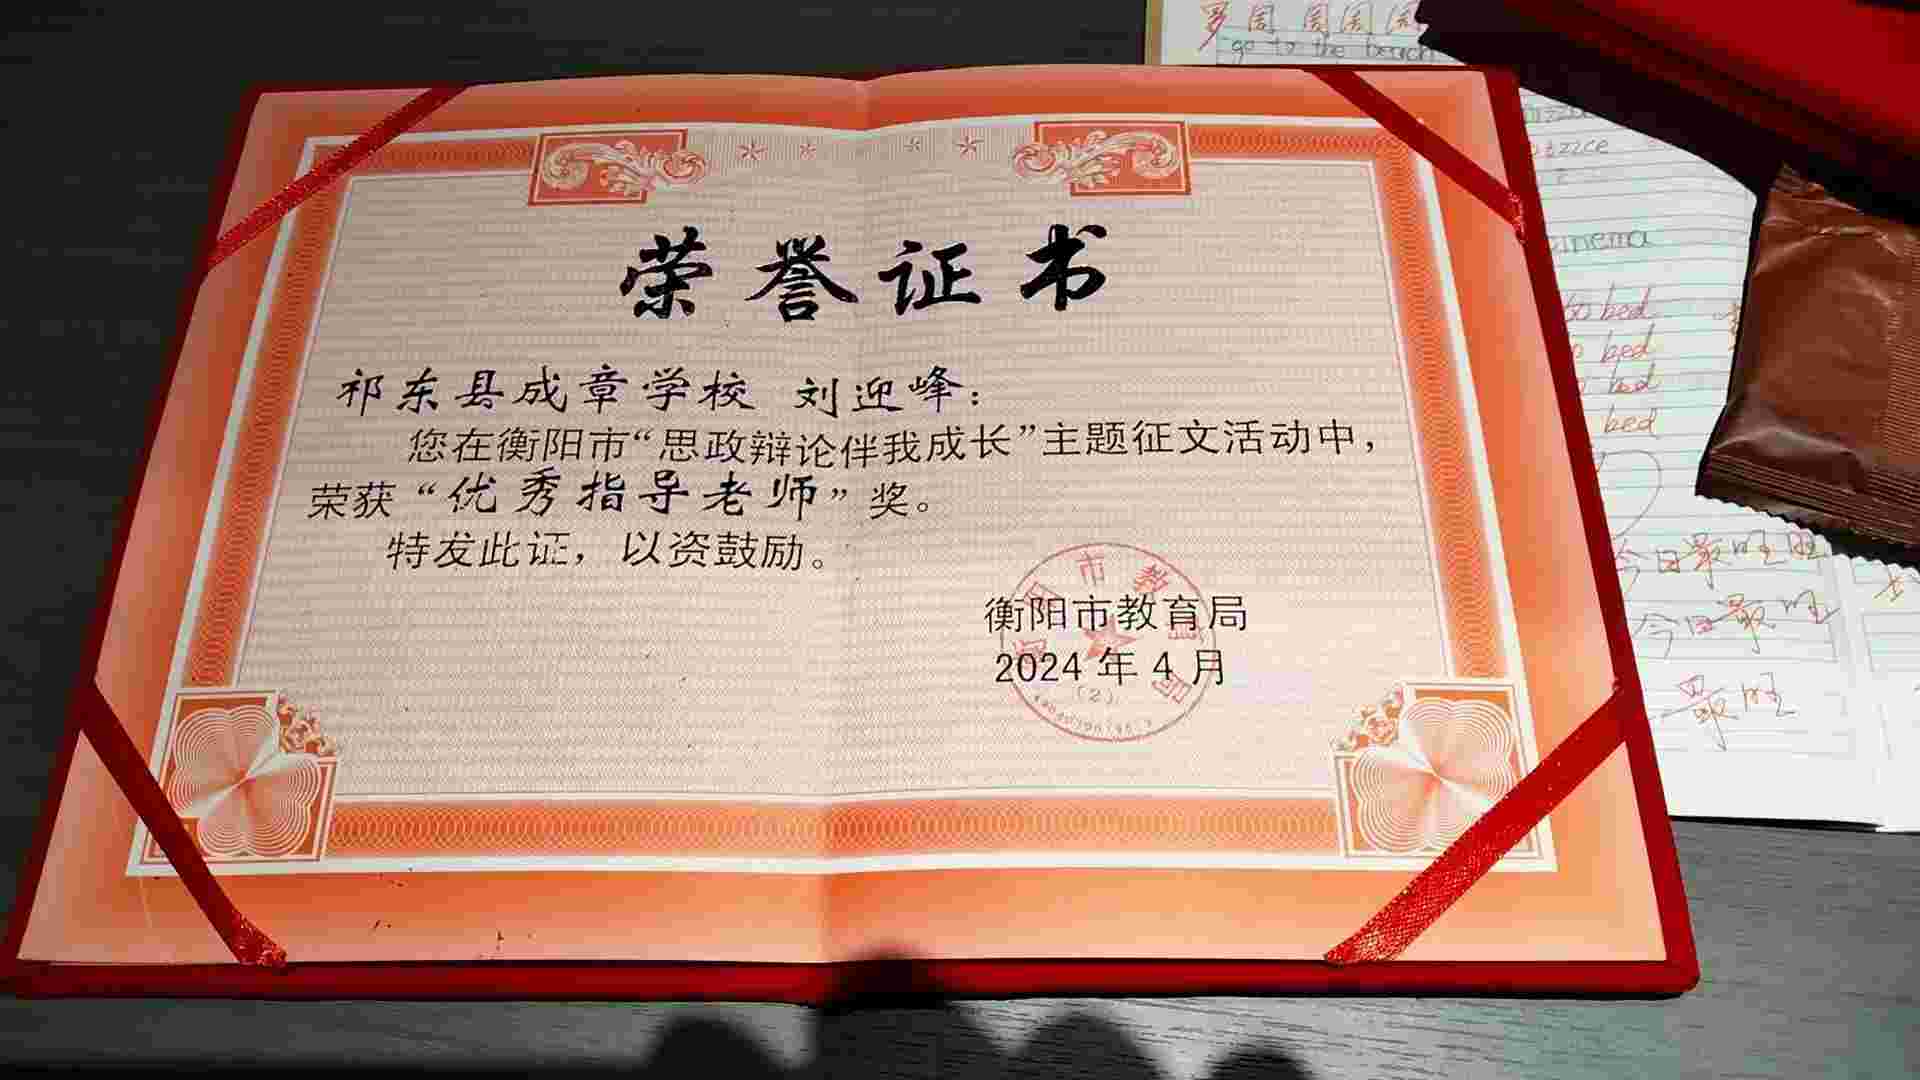 荣誉证书
祁东县成章学校 刘迎峰：
您在衡阳市“思政辩论伴我成长”主题征文活动中，
荣获“优秀指导老师”奖。
特发此证，以资鼓励。
衡阳市教育局
2024年4月
衡阳市教育局
(2)
罗 周 周 周
go to the beach
cinema
to bed
bed
bed
bed
今日最旺 旺
今日最旺
最旺